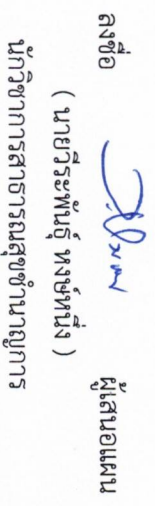 ลงชื่อ ผู้เสนอแผน
( นายวีระพันธุ์ หงษ์หนึ่ง )
นักวิชาการสาธารณสุขชำนาญการ